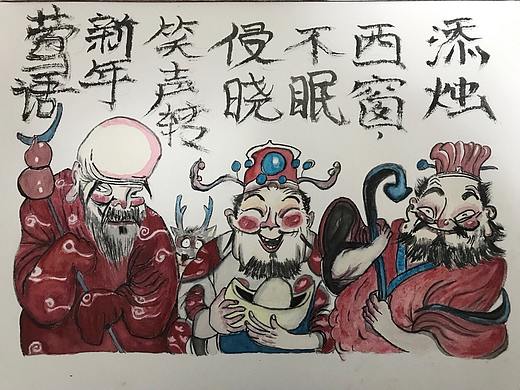 添烛
西窗,
不眠
侵晓
笑声转
新年
莺语